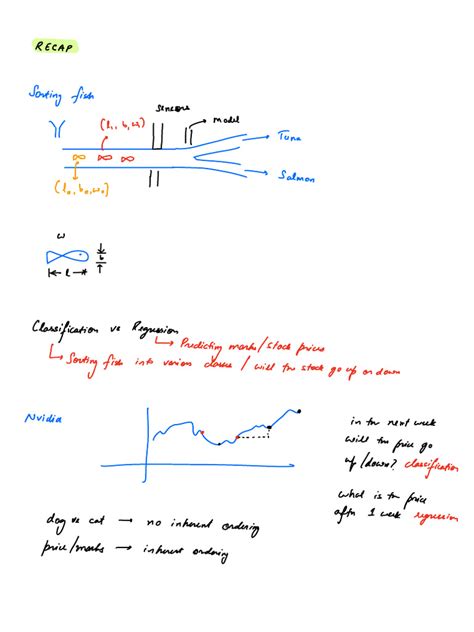 RECAP
Sorting fish
sensors
model
(l₁, b₁, w₁)
Tuna
Salmon
(l₀, b₀, w₀)
w
b
l
Classification vs Regression
Predicting marks/stock prices
Sorting fish into various classes / will the stock go up or down
Nvidia
in the next week
will the price go
up/down? classification
what is the price
after 1 week regression
dog vs cat → no inherent ordering
price/marks → inherent ordering